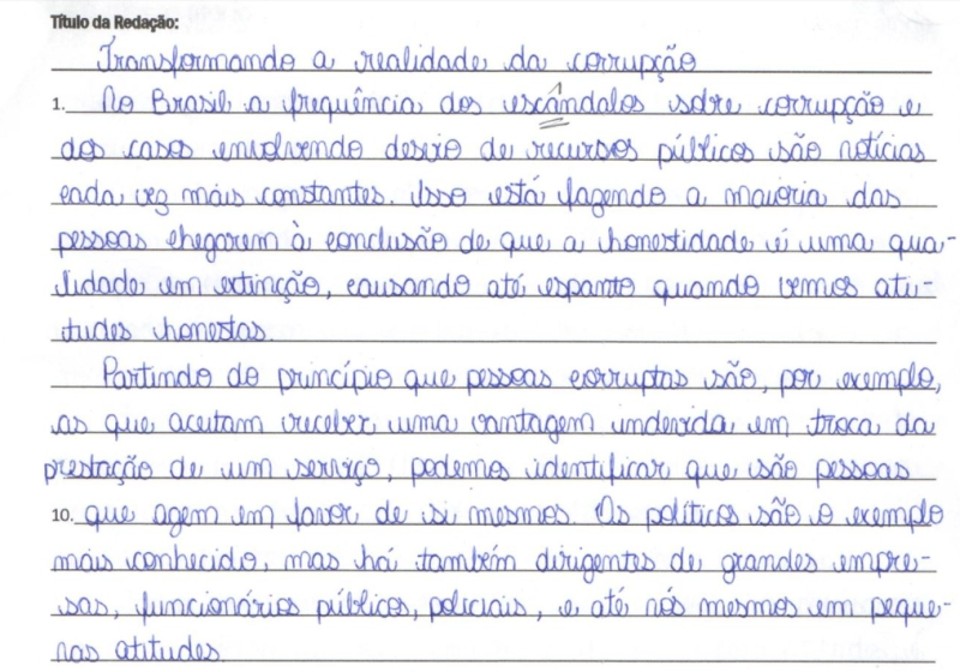 Título da Redação:
Transformando a realidade da corrupção
1. No Brasil a frequência dos escândalos sobre corrupção e
dos casos envolvendo desvio de recursos públicos são notícias
cada vez mais constantes. Isso está fazendo a maioria das
pessoas chegarem à conclusão de que a honestidade é uma qua-
lidade em extinção, causando até espanto quando vemos ati-
tudes honestas.
Partindo do princípio que pessoas corruptas são, por exemplo,
as que aceitam receber uma vantagem indevida em troca da
prestação de um serviço, podemos identificar que são pessoas
10. que agem em favor de si mesmos. Os políticos são o exemplo
mais conhecido, mas há também dirigentes de grandes empre-
sas, funcionários públicos, policiais, e até nós mesmos em peque-
nas atitudes.